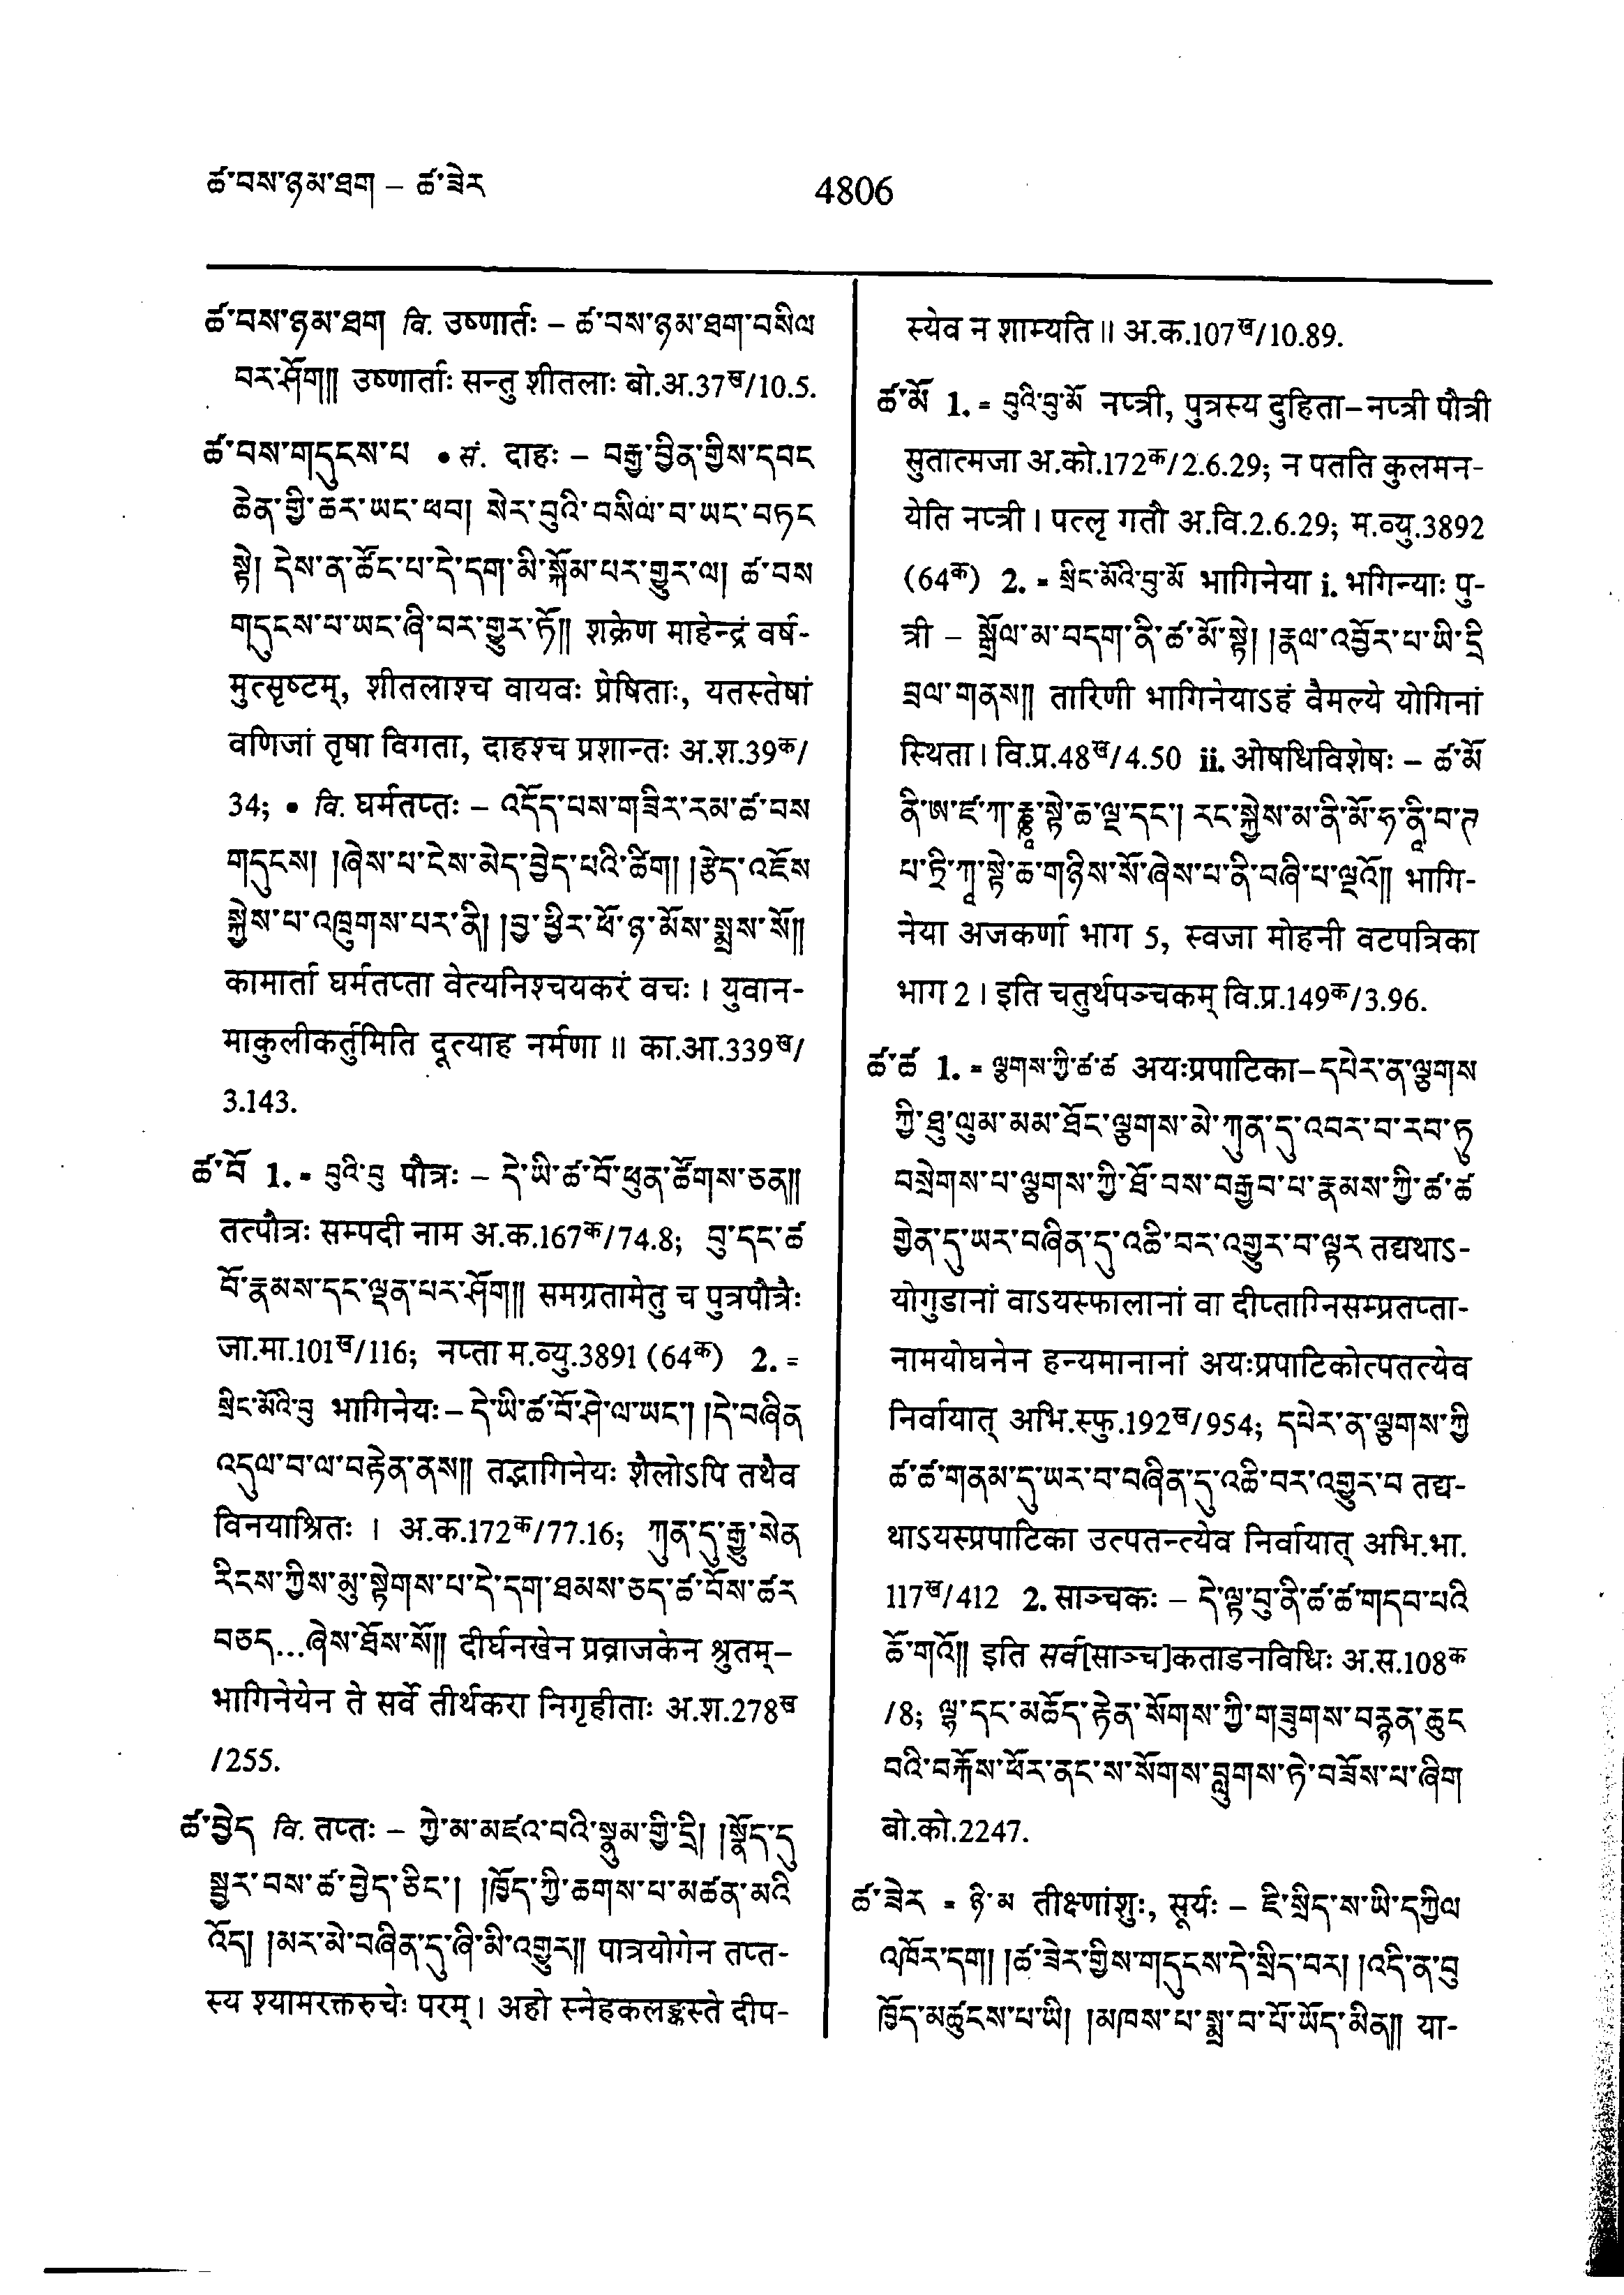 ཚ་བས་ཉམ་ཐག – ཚ་ཟེར
4806
ཚ་བས་ཉམ་ཐག वि. उष्णार्तः – ཚ་བས་ཉམ་ཐག་བསིལ
བར་ཤོག།། उष्णार्ताः सन्तु शीतलाः बो.अ.37ख/10.5.
ཚ་བས་གདུངས་པ • सं. दाहः – བརྒྱ་བྱིན་གྱིས་དབང
ཆེན་གྱི་ཆར་ཡང་ཕབ། སེར་བུའི་བསིལ་བ་ཡང་བཏང
སྟེ། དེས་ན་ཚོང་པ་དེ་དག་མི་སྐོམ་པར་གྱུར་ལ། ཚ་བས
གདུངས་པ་ཡང་ཞི་བར་གྱུར་ཏོ།། शक्रेण माहेन्द्रं वर्ष-
मुत्सृष्टम्, शीतलाश्च वायवः प्रेषिताः, यतस्तेषां
वणिजां तृषा विगता, दाहश्च प्रशान्तः अ.श.39क/
34; • वि. घर्मतप्तः – འདོད་པས་གཟིར་རམ་ཚ་བས
གདུངས། །ཞེས་པ་ངེས་མེད་བྱེད་པའི་ཚིག། །རྩེད་འཇོས
སྐྱེས་པ་འཁྲུགས་པར་ནི། །བྱ་ཕྱིར་ཕོ་ཉ་མོས་སྨྲས་སོ།།
कामार्ता घर्मतप्ता वेत्यनिश्चयकरं वचः। युवान-
माकुलीकर्तुमिति दूत्याह नर्मणा॥ का.आ.339ख/
3.143.
ཚ་བོ 1. = བུའི་བུ पौत्रः – དེ་ཡི་ཚ་བོ་ཕུན་ཚོགས་ཅན།།
तत्पौत्रः सम्पदी नाम अ.क.167क/74.8; བུ་དང་ཚ
བོ་རྣམས་དང་ལྡན་པར་ཤོག།། समग्रतामेतु च पुत्रपौत्रैः
जा.मा.101ख/116; नप्ता म.व्यु.3891 (64क) 2. =
སྲིང་མོའི་བུ भागिनेयः – དེ་ཡི་ཚ་བོ་ཤེ་ལ་ཡང་། །དེ་བཞིན
འདུལ་བ་ལ་བརྟེན་ནས།། तद्भागिनेयः शैलोऽपि तथैव
विनयाश्रितः। अ.क.172क/77.16; ཀུན་དུ་རྒྱུ་སེན
རིངས་ཀྱིས་མུ་སྟེགས་པ་དེ་དག་ཐམས་ཅད་ཚ་བོས་ཚར
བཅད...ཞེས་ཐོས་སོ།། दीर्घनखेन प्रव्राजकेन श्रुतम्–
भागिनेयेन ते सर्वे तीर्थकरा निगृहीताः अ.श.278ख
/255.
ཚ་བྱེད वि. तप्तः – ཀྱེ་མ་མཛའ་བའི་སྣུམ་གྱི་དྲི། །སྣོད་དུ
སྦྱར་བས་ཚ་བྱེད་ཅིང་། །ཁྱོད་ཀྱི་ཆགས་པ་མཚན་མའི
འོད། །མར་མེ་བཞིན་དུ་ཞི་མི་འགྱུར།། पात्रयोगेन तप्त-
स्य श्यामरक्तरुचेः परम्। अहो स्नेहकलङ्कस्ते दीप-
स्येव न शाम्यति॥ अ.क.107ख/10.89.
ཚ་མོ 1. = བུའི་བུ་མོ नप्त्री, पुत्रस्य दुहिता–नप्त्री पौत्री
सुतात्मजा अ.को.172क/2.6.29; न पतति कुलमन-
येति नप्त्री। पत्लृ गतौ अ.वि.2.6.29; म.व्यु.3892
(64क) 2. = སྲིང་མོའི་བུ་མོ भागिनेया i. भगिन्याः पु-
त्री – སྒྲོལ་མ་བདག་ནི་ཚ་མོ་སྟེ། །རྣལ་འབྱོར་པ་ཡི་དྲི
བྲལ་གནས།། तारिणी भागिनेयाऽहं वैमल्ये योगिनां
स्थिता। वि.प्र.48ख/4.50 ii. ओषधिविशेषः – ཚ་མོ
ནི་ཨ་ཛ་ཀ་རྞྞ་སྟེ་ཆ་ལྔ་དང་། རང་སྐྱེས་མ་ནི་མོ་ཧ་ནཱི་བ་ཊ
པ་ཏྲི་ཀཱ་སྟེ་ཆ་གཉིས་སོ་ཞེས་པ་ནི་བཞི་པ་ལྔའོ།། भागि-
नेया अजकर्णा भाग 5, स्वजा मोहनी वटपत्रिका
भाग 2। इति चतुर्थपञ्चकम् वि.प्र.149क/3.96.
ཚ་ཚ 1. = ལྕགས་ཀྱི་ཚ་ཚ अयःप्रपाटिका–དཔེར་ན་ལྕགས
ཀྱི་ཐུ་ལུམ་མམ་ཐོང་ལྕགས་མེ་ཀུན་དུ་འབར་བ་རབ་ཏུ
བསྲེགས་པ་ལྕགས་ཀྱི་ཐོ་བས་བརྒྱབ་པ་རྣམས་ཀྱི་ཚ་ཚ
གྱེན་དུ་ཡར་བཞིན་དུ་འཆི་བར་འགྱུར་བ་ལྟར तद्यथाऽ-
योगुडानां वाऽयस्फालानां वा दीप्ताग्निसम्प्रतप्ता-
नामयोघनेन हन्यमानानां अयःप्रपाटिकोत्पतत्येव
निर्वायात् अभि.स्फु.192ख/954; དཔེར་ན་ལྕགས་ཀྱི
ཚ་ཚ་གནམ་དུ་ཡར་བ་བཞིན་དུ་འཆི་བར་འགྱུར་བ तद्य-
थाऽयस्प्रपाटिका उत्पतन्त्येव निर्वायात् अभि.भा.
117ख/412 2. साञ्चकः – དེ་ལྟ་བུ་ནི་ཚ་ཚ་གདབ་པའི
ཆོ་གའོ།། इति सर्व[साञ्च]कताडनविधिः अ.स.108क
/8; ལྷ་དང་མཆོད་རྟེན་སོགས་ཀྱི་གཟུགས་བརྙན་ཆུང
བའི་བརྐོས་ཕོར་ནང་ས་སོགས་བླུགས་ཏེ་བཟོས་པ་ཞིག
बो.को.2247.
ཚ་ཟེར = ཉི་མ तीक्ष्णांशुः, सूर्यः – ཇི་སྲིད་ས་ཡི་དཀྱིལ
འཁོར་དག། །ཚ་ཟེར་གྱིས་གདུངས་དེ་སྲིད་བར། །འདི་ན་བུ
ཁྱོད་མཚུངས་པ་ཡི། །མཁས་པ་སྨྲ་བ་པོ་ཡོད་མིན།། या-